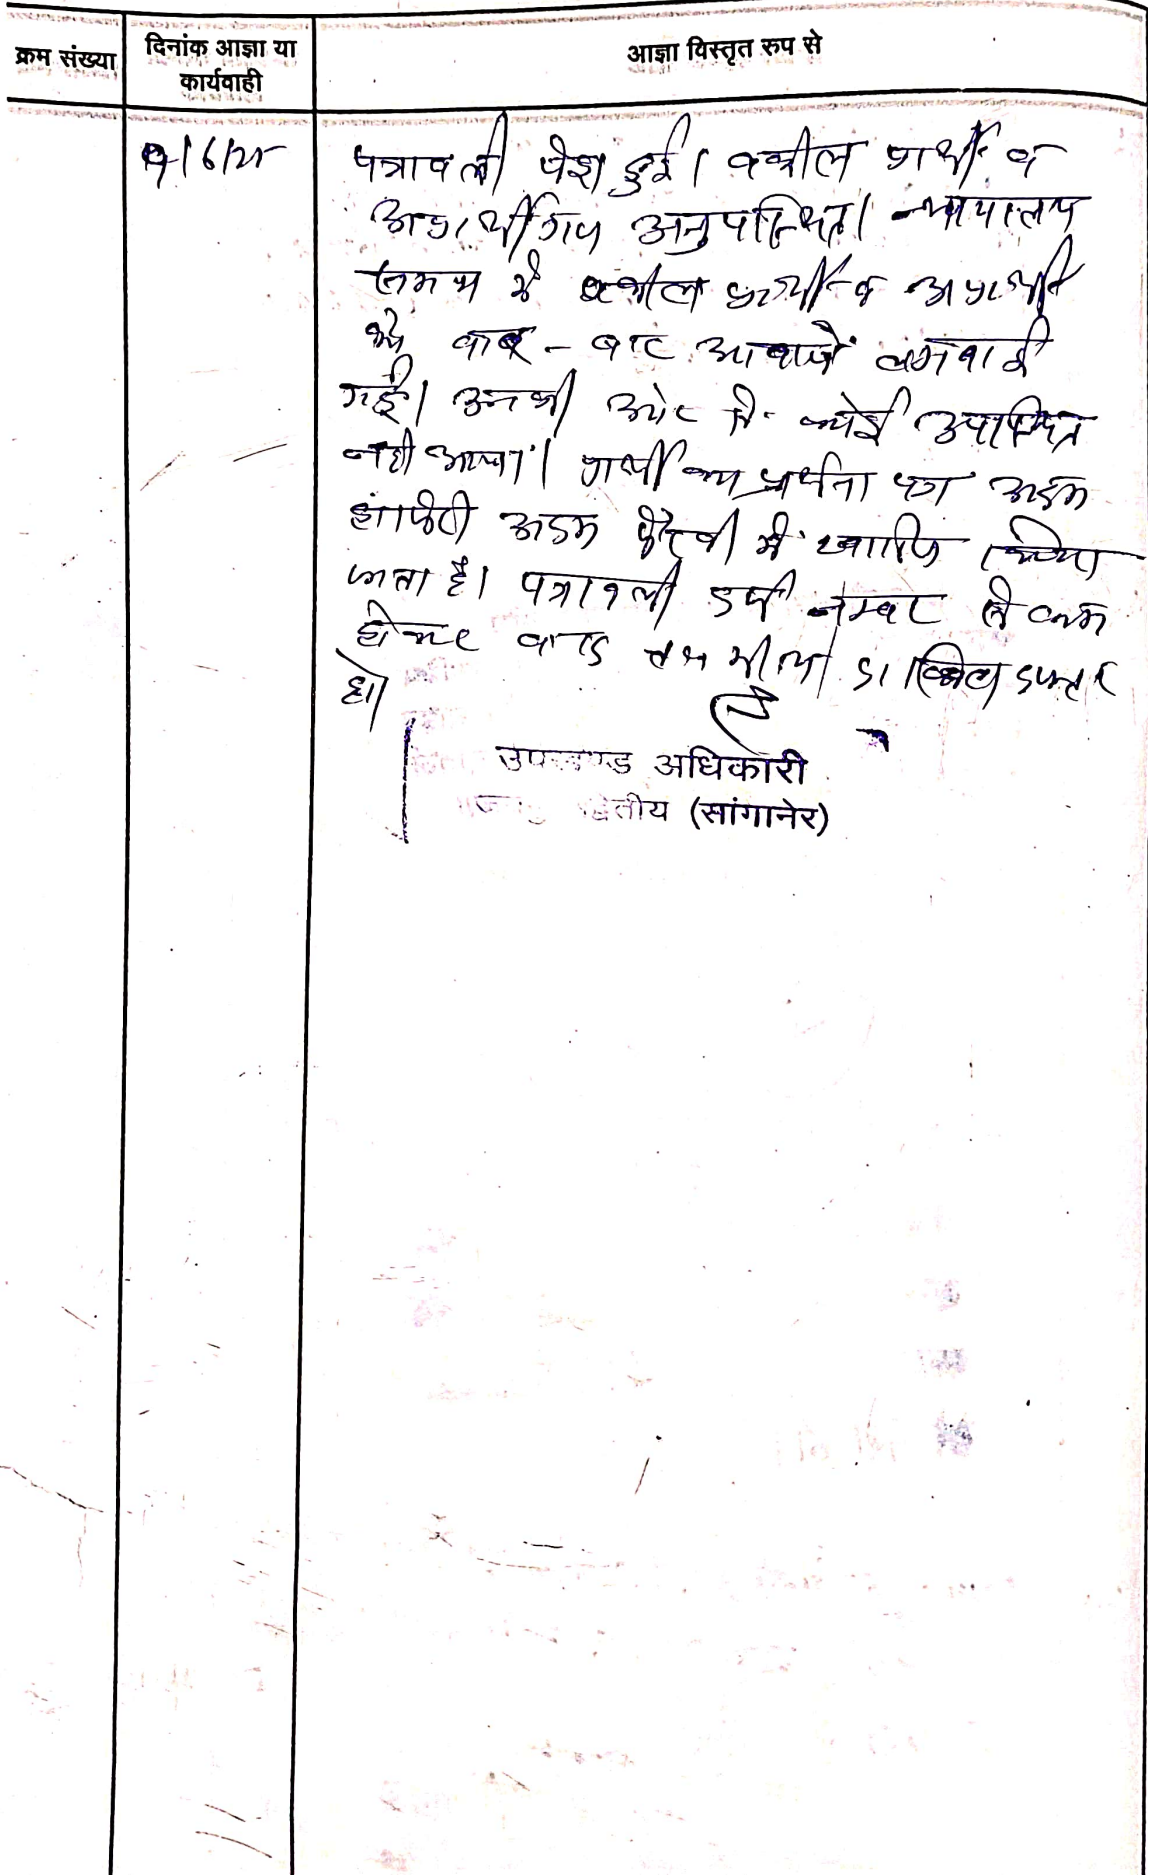 क्रम संख्या
दिनांक आज्ञा या
कार्यवाही
आज्ञा विस्तृत रुप से
9/6/25
पत्रावली पेश हुई। वकील प्रार्थी व
अप्रार्थीगण अनुपस्थित। न्यायालय
समय में वकील प्रार्थी व अप्रार्थी
को बार - बार आवाजें लगवाई
गई। उनकी ओर से कोई उपस्थित
नहीं आया। प्रार्थी का प्रार्थना पत्र अदम
हाजरी अदम पैरवी में खारिज किया
जाता है। पत्रावली दर्ज नम्बर से कम
होकर बाद तकमील दाखिल दफ्तर
हो।
उपखण्ड अधिकारी
द्वितीय (सांगानेर)